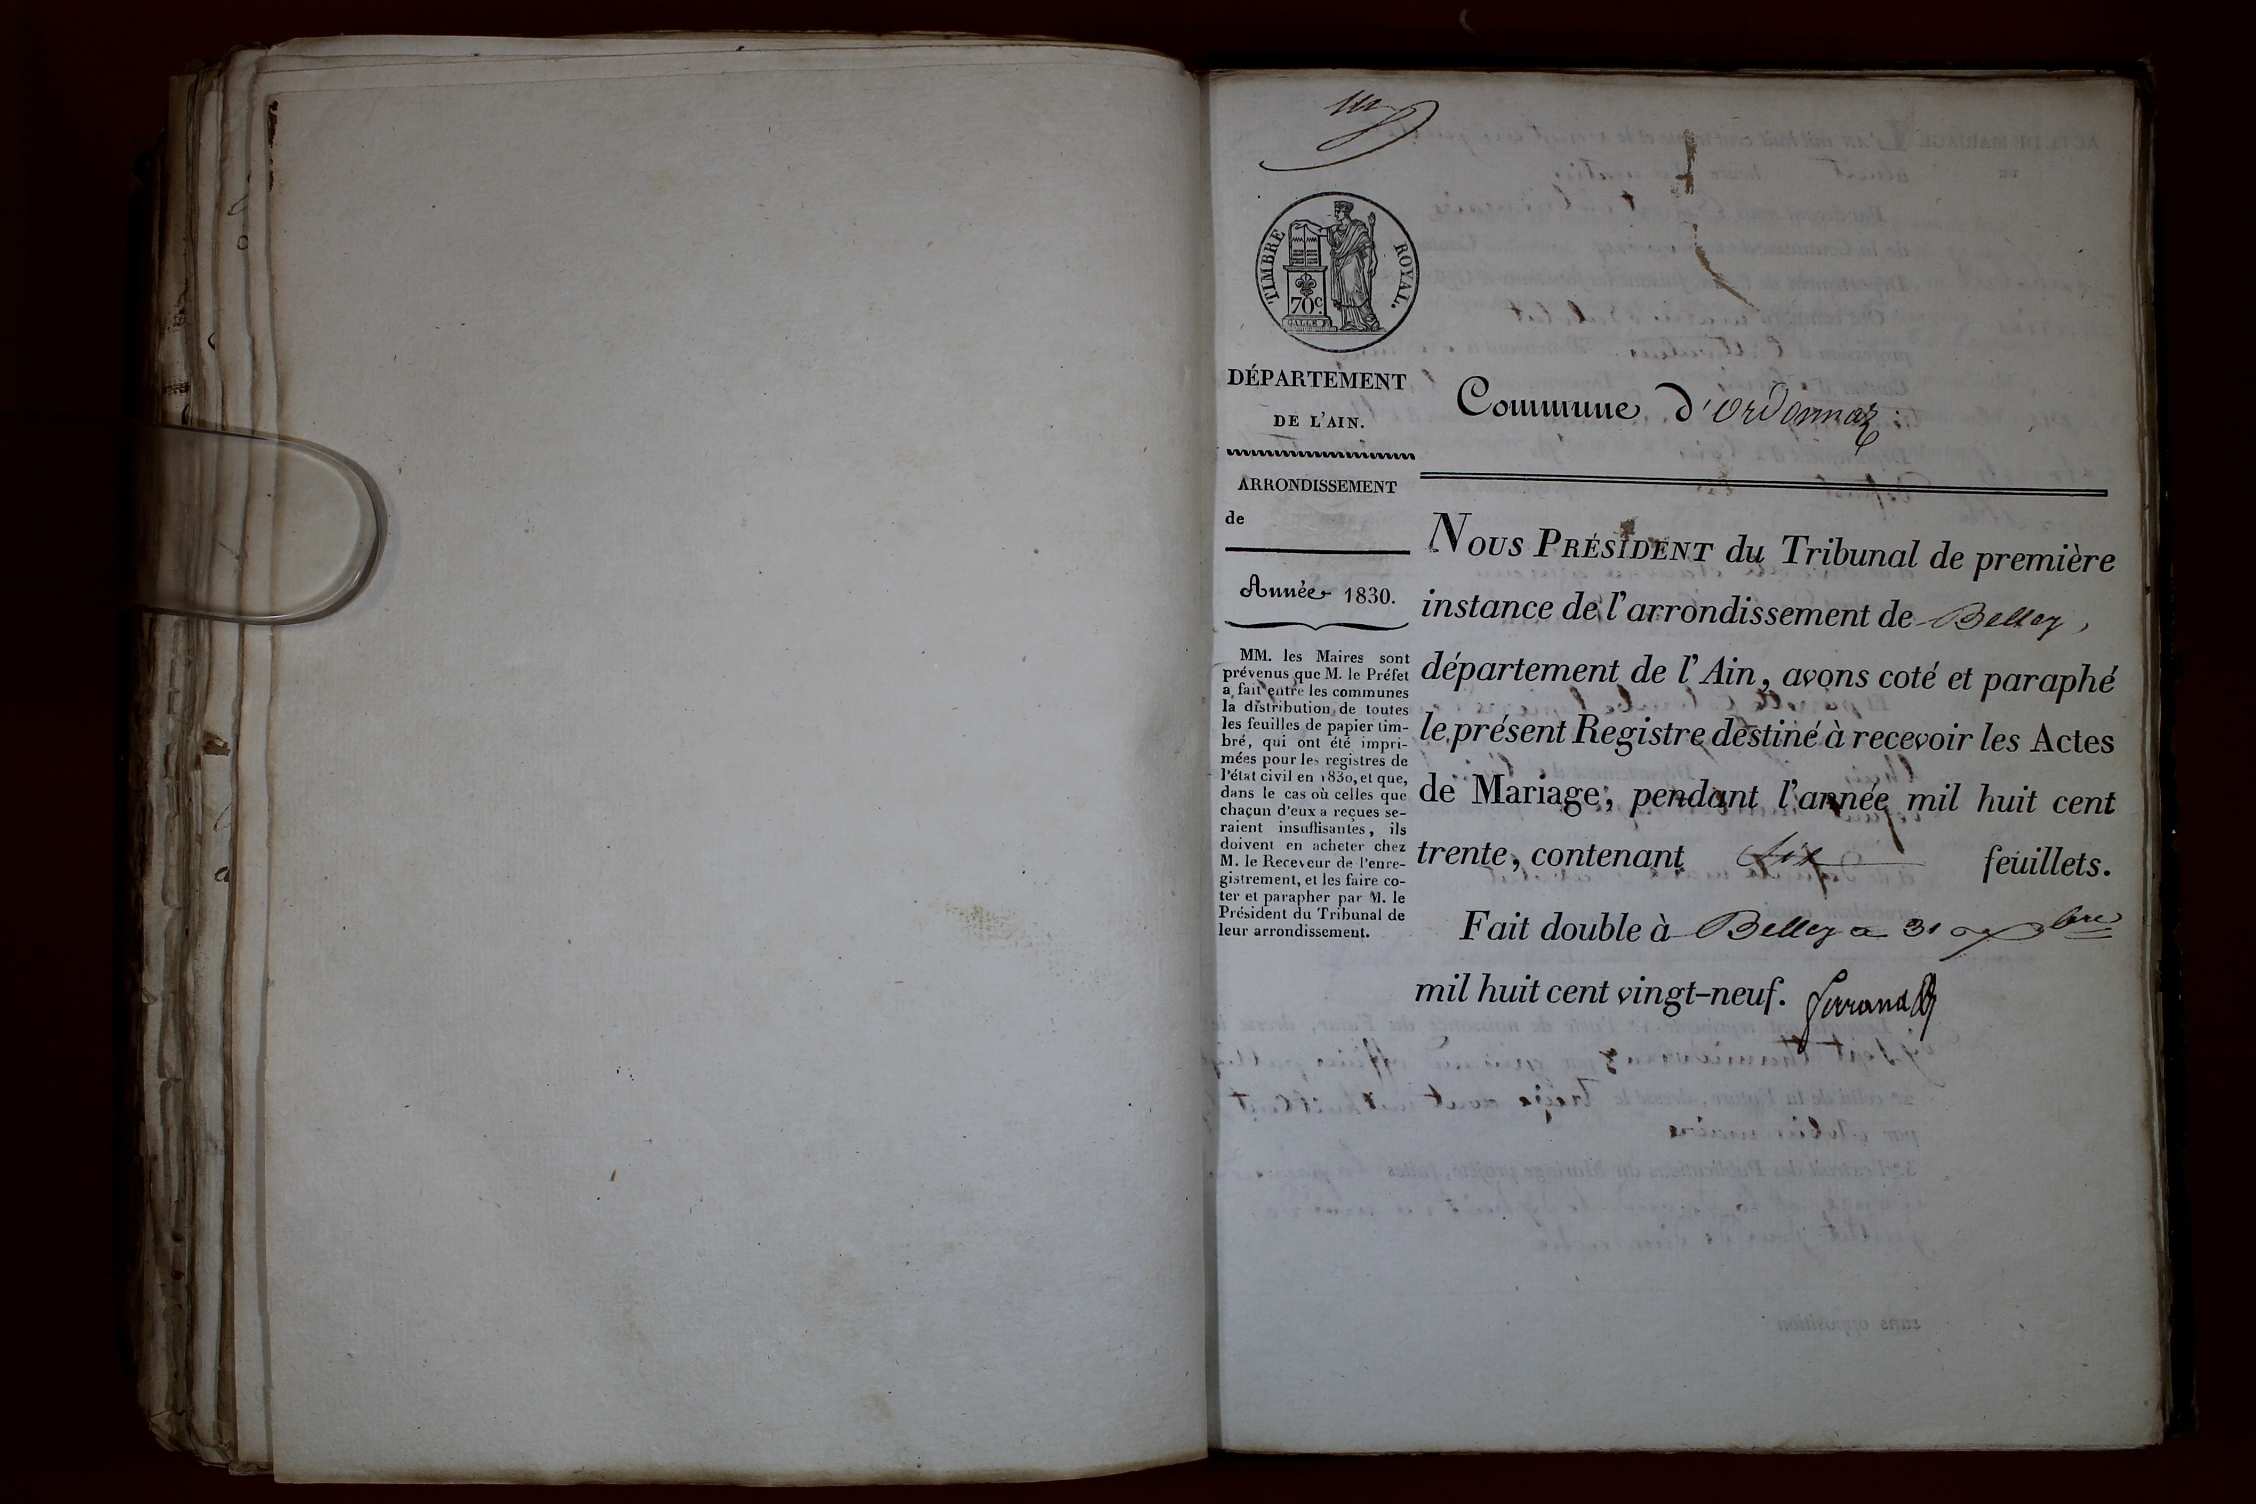 TIMBRE ROYAL.
70c.
DÉPARTEMENT
DE L'AIN.
ARRONDISSEMENT
de
Année 1830.
MM. les Maires sont
prévenus que M. le Préfet
a fait entre les communes
la distribution de toutes
les feuilles de papier tim-
bré, qui ont été impri-
mées pour les registres de
l'état civil en 1830, et que,
dans le cas où celles que
chacun d'eux a reçues se-
raient insuffisantes, ils
doivent en acheter chez
M. le Receveur de l'enre-
gistrement, et les faire co-
ter et parapher par M. le
Président du Tribunal de
leur arrondissement.
Commune d'ordonnaz
NOUS PRÉSIDENT du Tribunal de première
instance de l'arrondissement de Belley,
département de l'Ain, avons coté et paraphé
le présent Registre destiné à recevoir les Actes
de Mariage, pendant l'année mil huit cent
trente, contenant six feuillets.
Fait double à Belley ce 31 xbre
mil huit cent vingt-neuf.